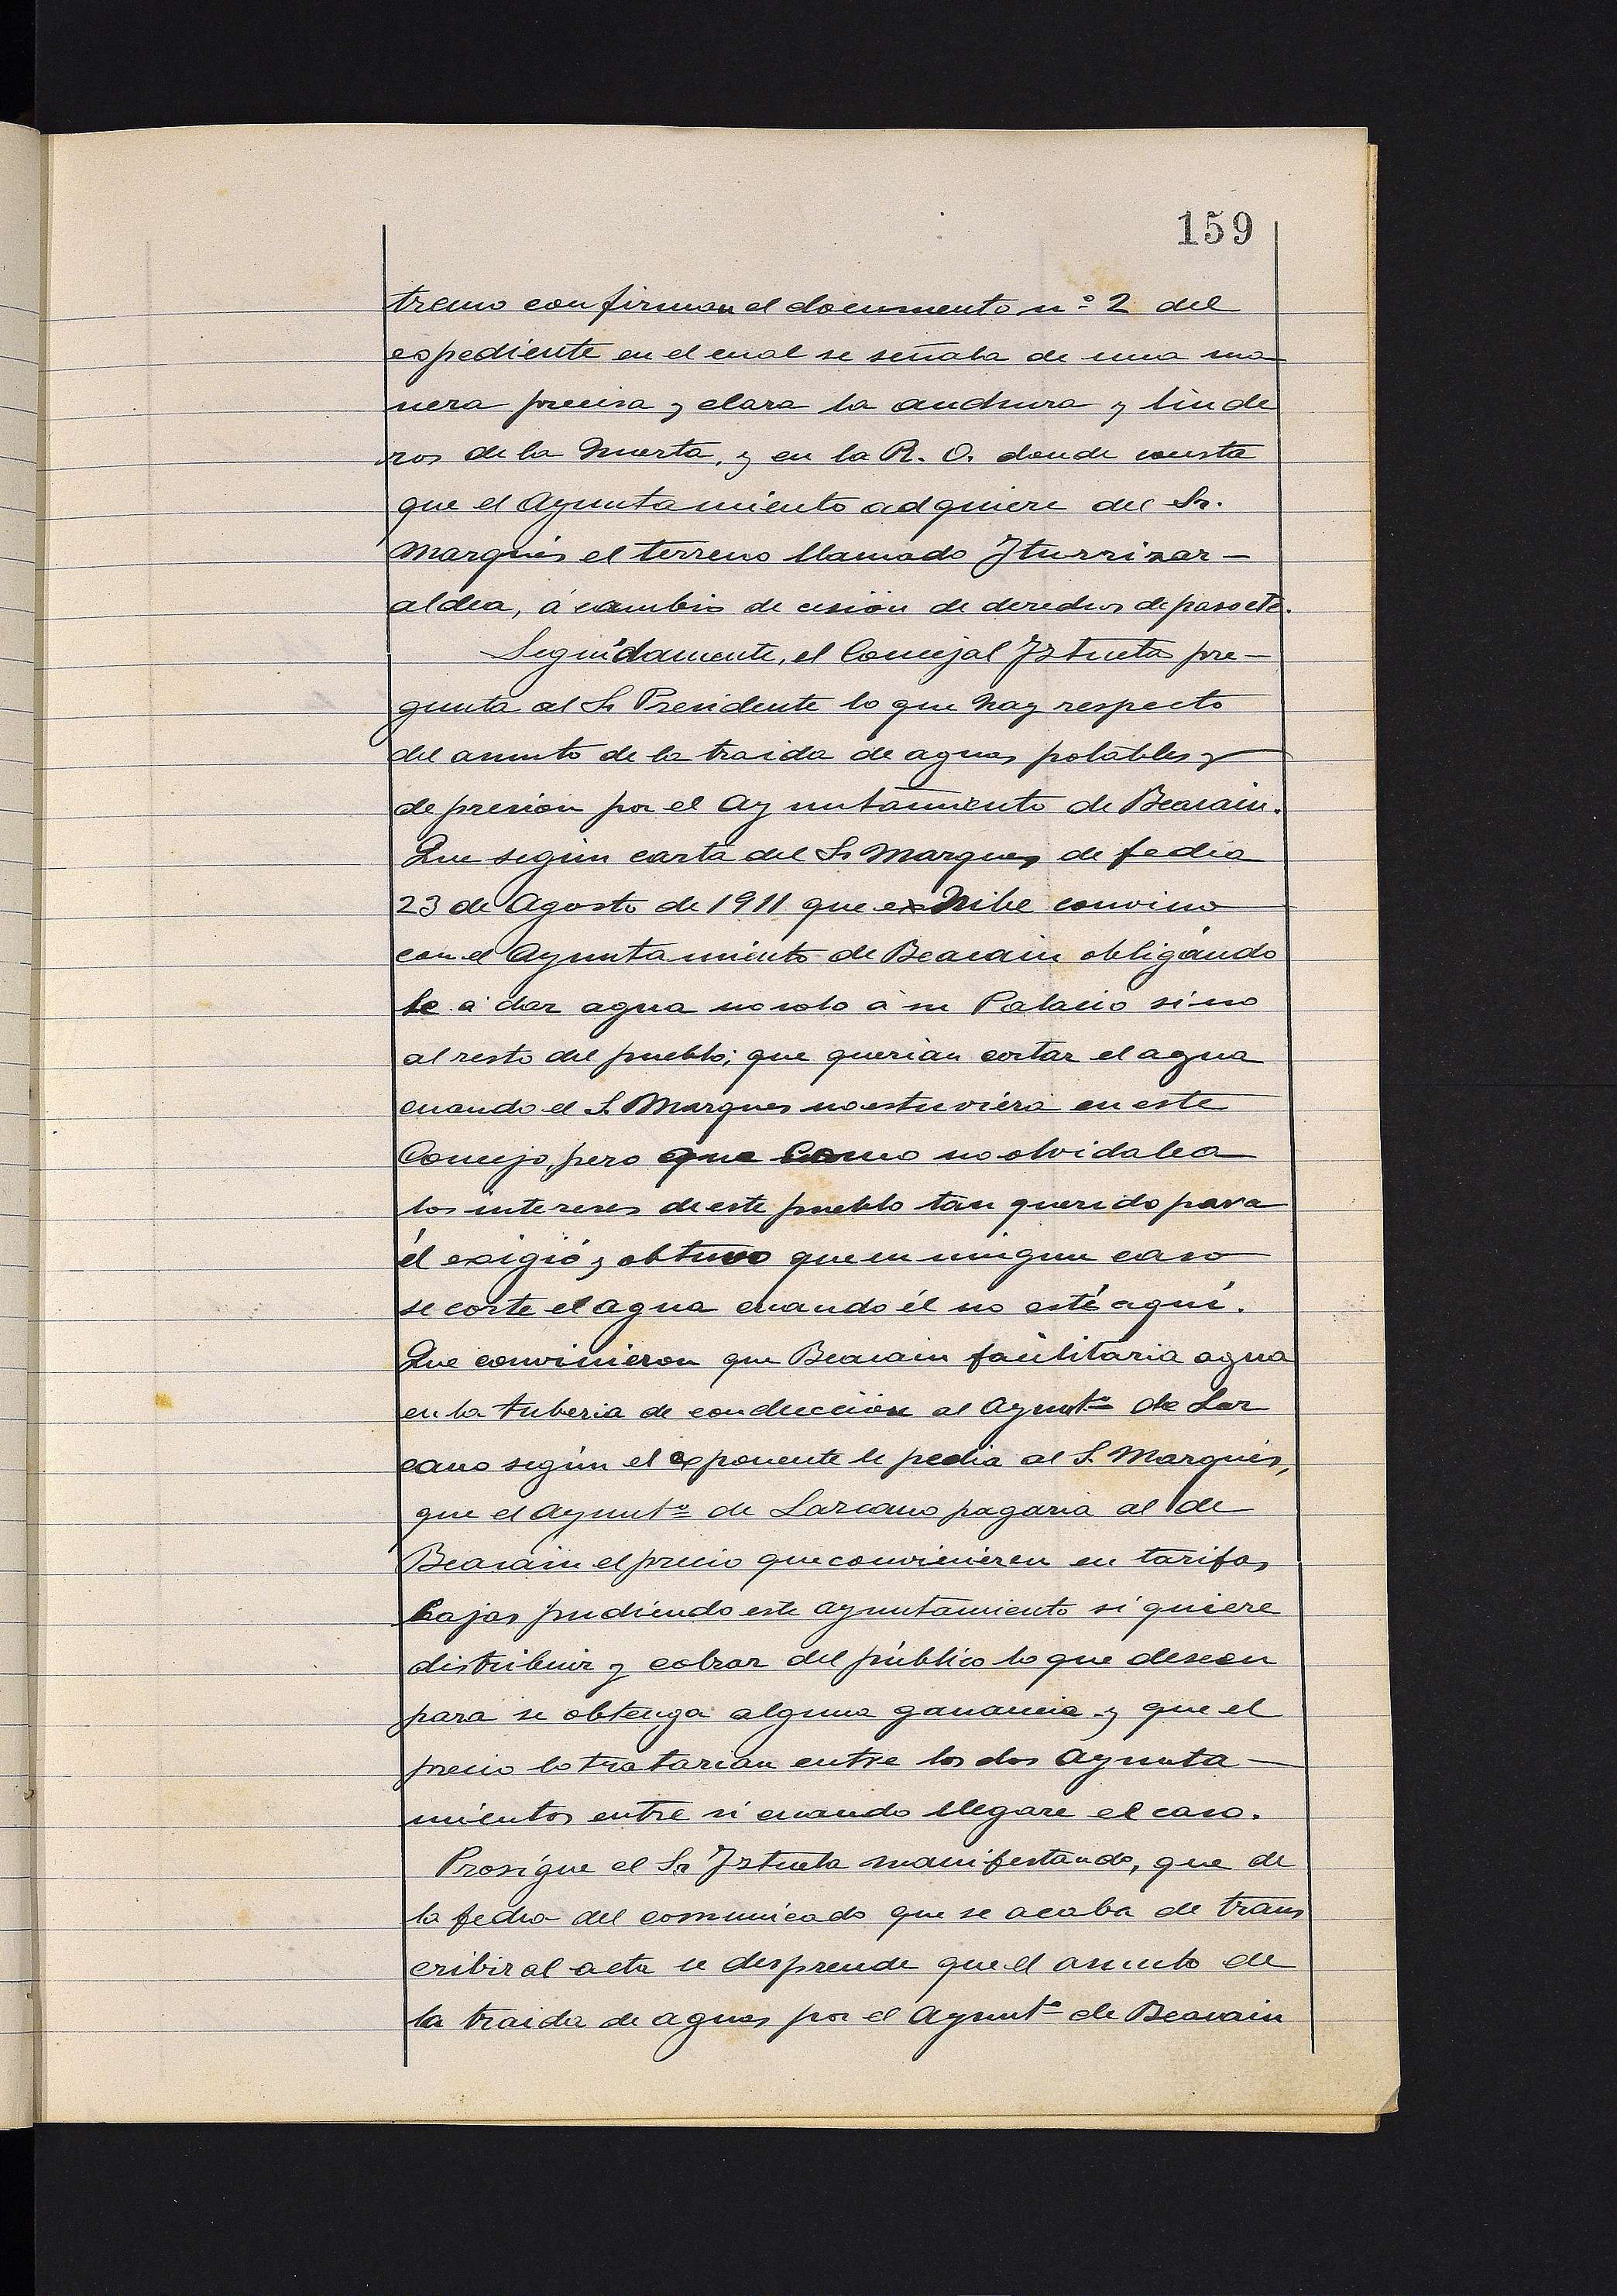 159
tremo confirman el documento nº 2 del
expediente en el cual se señala de una ma
nera precisa y clara la anchura y linde
ros de la huerta, y en la R. O. donde consta
que el Ayuntamiento adquiere del Sr.
Marqués el terreno llamado Iturrizar-
aldea, á cambio de cesión de derechos de paso etc.
Seguidamente, el Concejal Iztueta pre-
gunta al Sr Presidente lo que hay respecto
del asunto de la traida de aguas potables y
de presion por el Ayuntamiento de Beasain.
Que según carta del Sr Marques de fecha
23 de Agosto de 1911 que exhibe convino
con el Ayuntamiento de Beasain obligando
le á dar agua no solo á su Palacio sino
al resto del pueblo; que querian cortar el agua
cuando el S. Marques no estuviera en este
Concejo, pero que como no olvidaba
los intereses de este pueblo tan querido para
él exigió y obtuvo que en ningun caso
se corte el agua cuando él no esté aquí.
Que convinieron que Beasain facilitaria agua
en la tuberia de conducción al Ayuntº de Laz
cano según el exponente le pedia al S. Marqués,
que el Ayuntº de Lazcano pagaria al de
Beasain el precio que convinieren en tarifas
bajas pudiendo este ayuntamiento si quiere
distribuir y cobrar del público lo que deseen
para se obtenga alguna ganancia y que el
precio lo tratarian entre los dos Ayunta-
mientos entre si cuando llegare el caso.
Prosigue el Sr Iztueta manifestando, que de
la fecha del comunicado que se acaba de trans
cribir al acta se desprende que el asunto de
la traida de aguas por el Ayuntº de Beasain